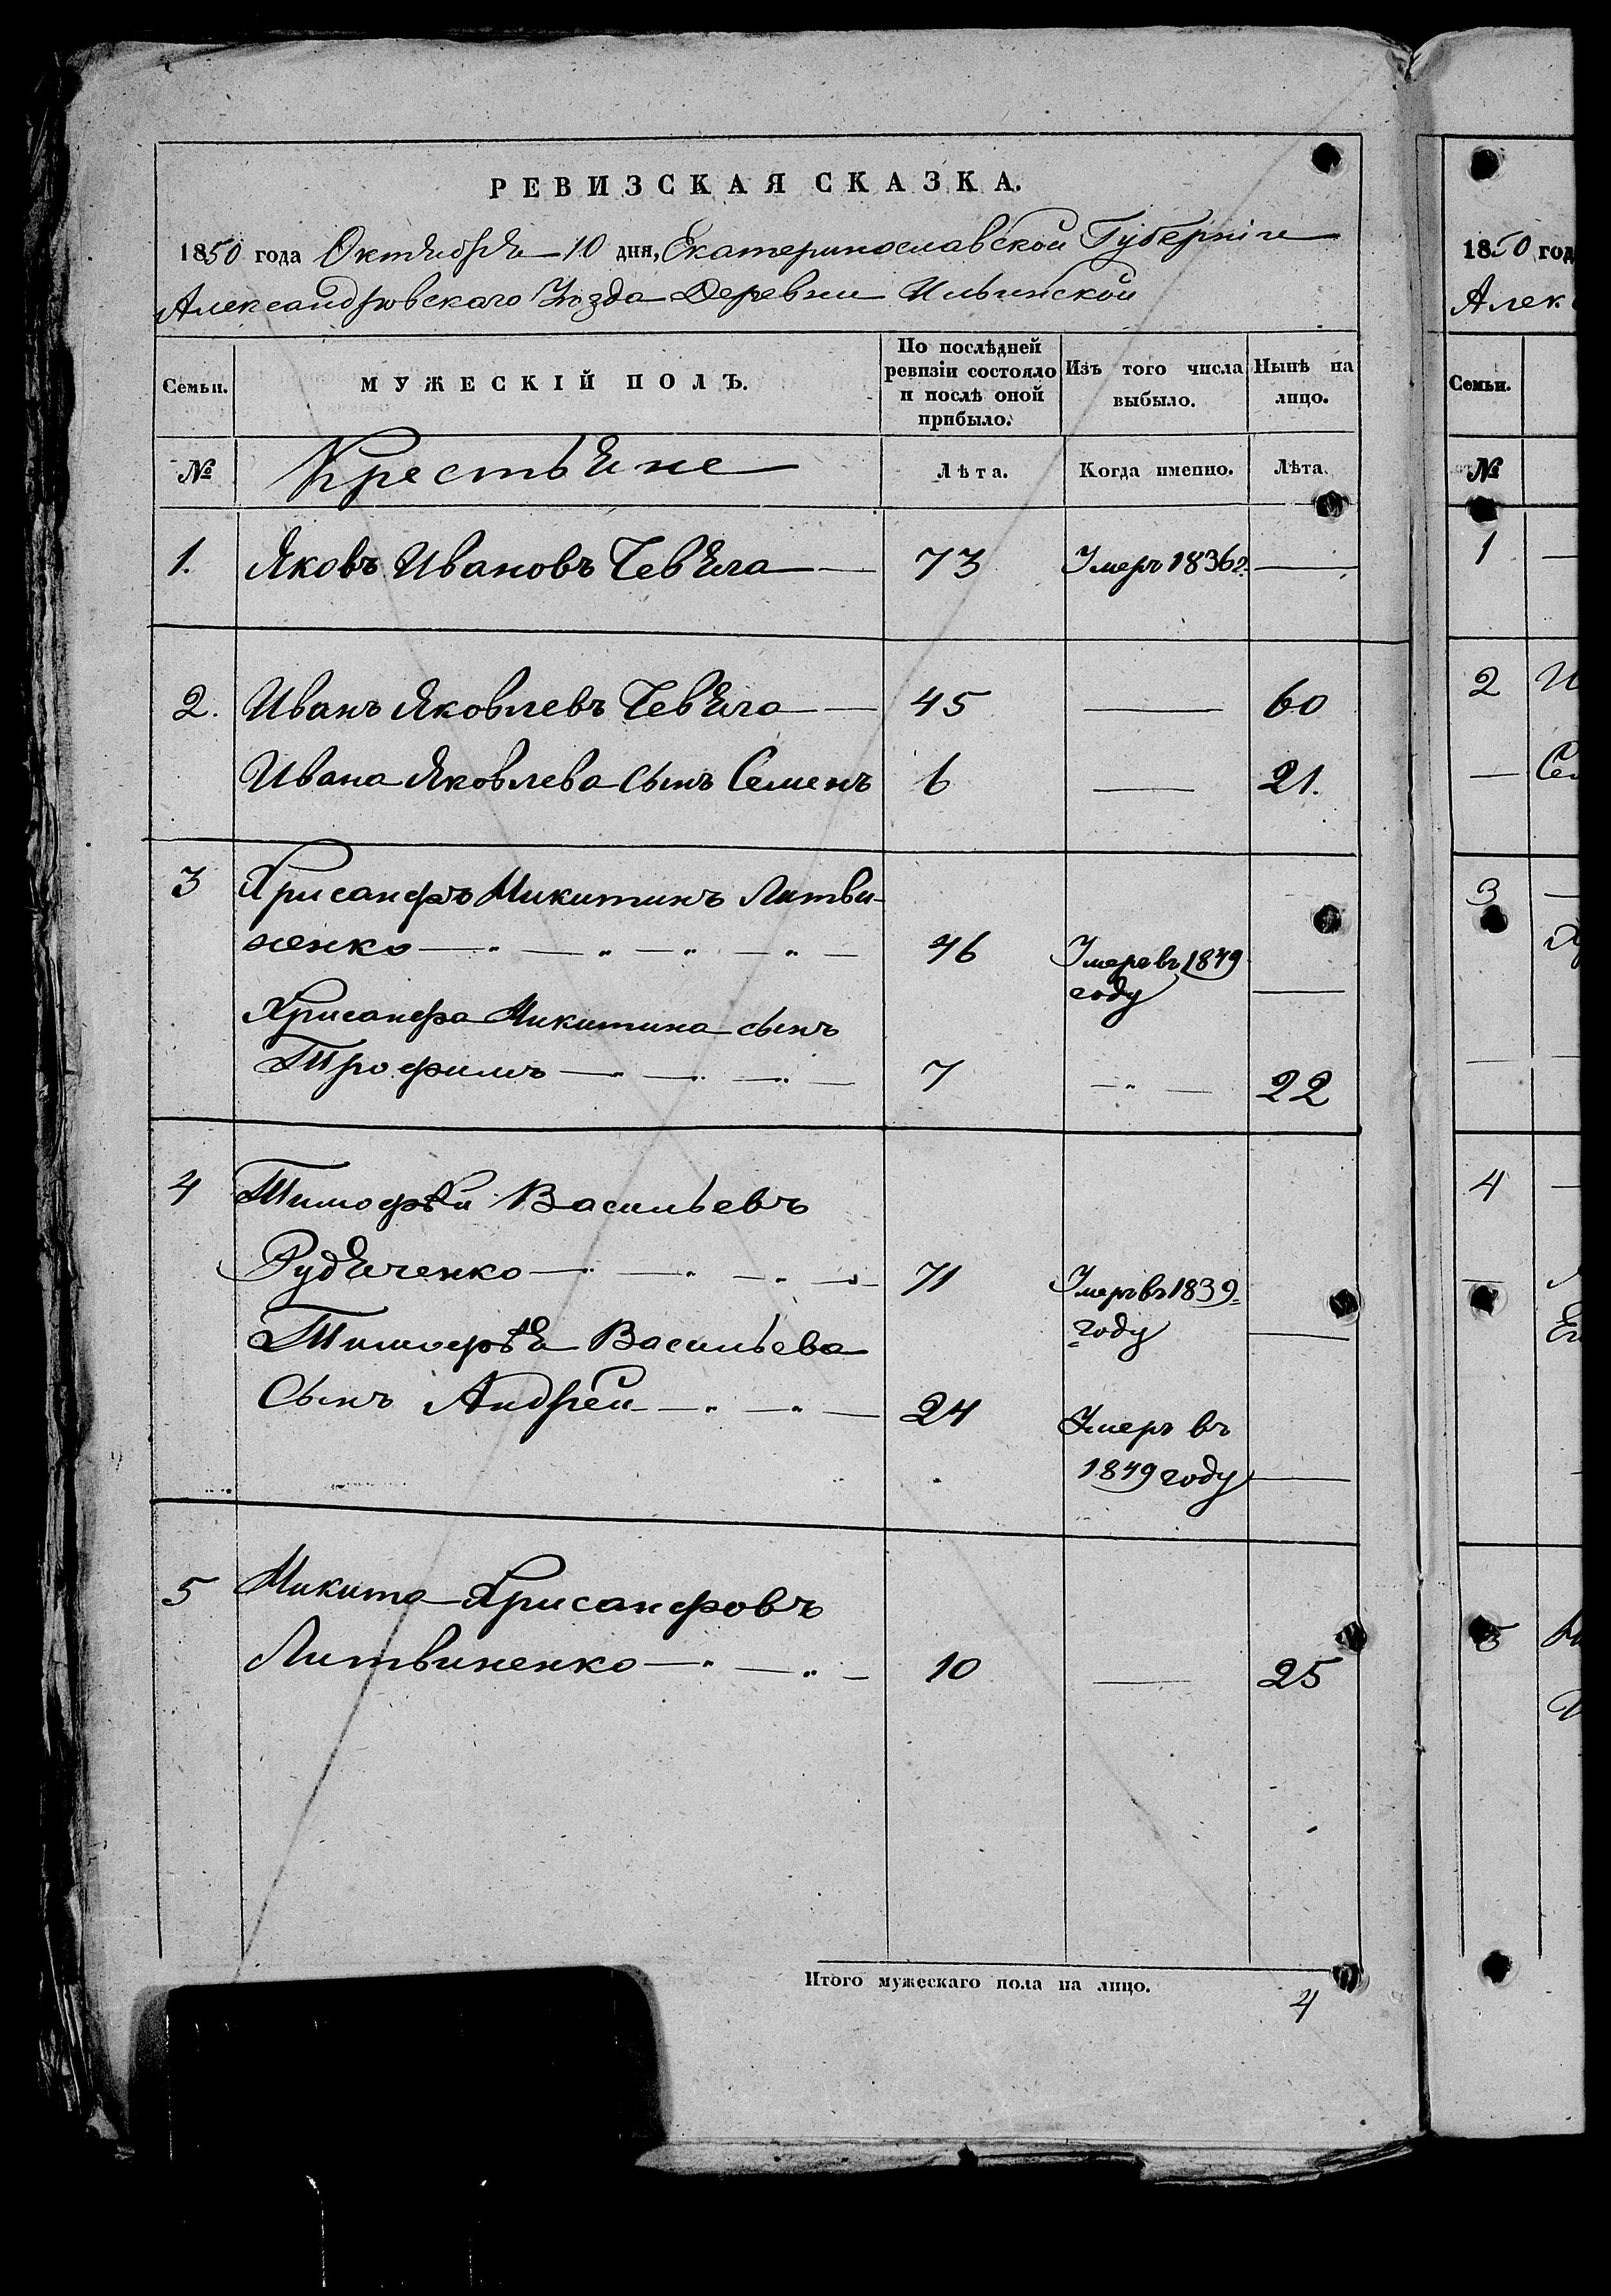 РЕВИЗСКАЯ СКАЗКА.
1850 года Октября 10 дня, Екатеринославской Губерніи
Александровскаго Уѣзда Деревни Ильинской
Семьи. МУЖЕСКІЙ ПОЛЪ. По послѣдней ревизіи состояло и послѣ оной прибыло. Изъ того числа выбыло. Нынѣ на лицо.
№ Крестьяне Лѣта. Когда именно. Лѣта.
1. Яковъ Ивановъ 73 Умеръ 1836г. —
2. Иванъ Яковлевъ 45 — 60
Ивана Яковлева сынъ Семенъ 6 — 21.
3 Хрисанфъ Никитинъ Литви-
ненко — " — " — " — " — 46 Умеръ въ 1849
году —
Хрисанфа Никитина сынъ
Трофимъ — " — " — " — 7 — " — 22
4 Тимофѣй Васильевъ
Рудяченко — " — " — " — " — 71 Умеръ въ 1839
году —
Тимофѣя Васильева
Сынъ Андрей — " — " — 24 Умеръ въ
1849 году —
5 Никита Хрисанфовъ
Литвиненко — " — " — 10 — 25
Итого мужескаго пола на лицо. 4
1850 год
Алек
Семьи.
№
1 —
2 И
— Сем
3 —
4 —
5